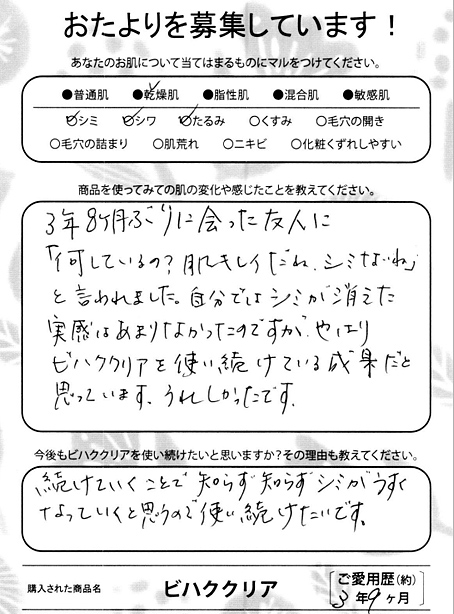 おたよりを募集しています！
あなたのお肌について当てはまるものにマルをつけてください。
●普通肌 ●乾燥肌 ●脂性肌 ●混合肌 ●敏感肌
○シミ ○シワ ○たるみ ○くすみ ○毛穴の開き
○毛穴の詰まり ○肌荒れ ○ニキビ ○化粧くずれしやすい
商品を使ってみての肌の変化や感じたことを教えてください。
3年8ヶ月ぶりに会った友人に
「何しているの？肌キレイだね、シミないね」
と言われました。自分ではシミが消えた
実感はあまりなかったのですが、やはり
ビハククリアを使い続けている成果だと
思っています。うれしかったです。
今後もビハククリアを使い続けたいと思いますか？その理由も教えてください。
続けていくことで知らず知らずシミがうすく
なっていくと思うので使い続けたいです。
購入された商品名 ビハククリア
ご愛用歴(約)
3年9ヶ月